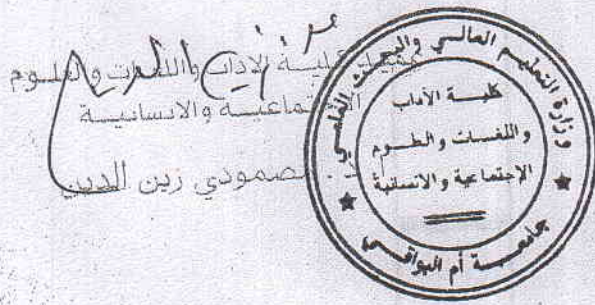 كلية الآداب واللغات والعلوم
الاجتماعية والانسانية
مصمودي زين الدين
وزارة التعليم العالي والبحث العلمي
كليـــة الآداب
واللغــات والعلــوم
الإجتماعية والانسانية
جامعـــة أم البواقـــي